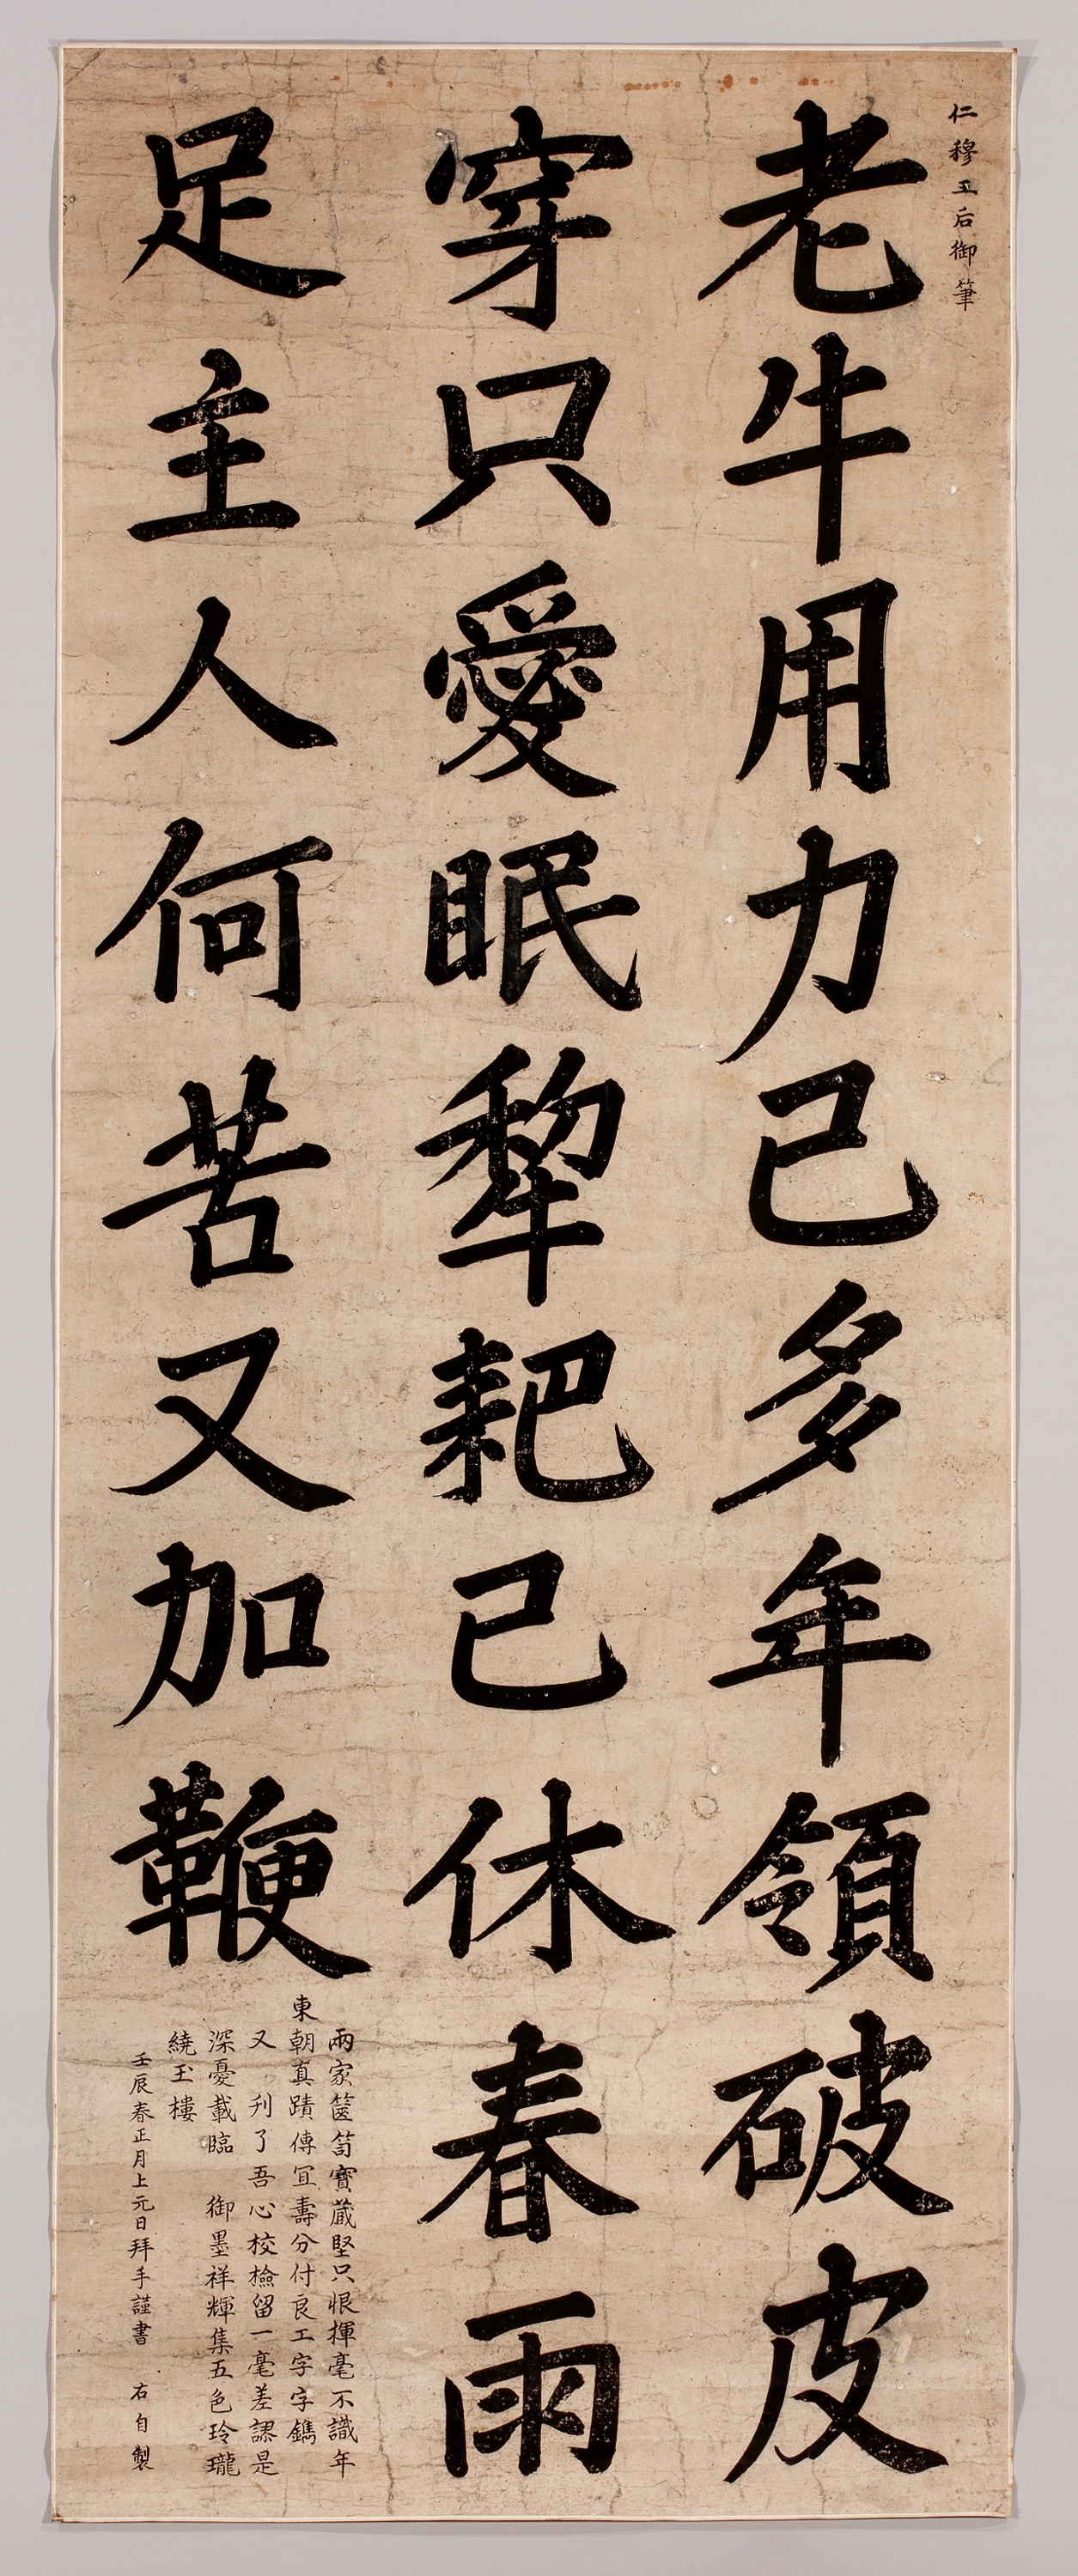 仁穆王后御筆
老牛用力已多年領破皮
穿只愛眠犂耙已休春雨
足主人何苦又加鞭
兩家篋笥寶蔵堅只恨揮毫不識年
東朝真蹟傳冝壽分付良工字字鐫
又刋了吾心校檢留一毫差謬是
深憂載臨御墨祥輝集五色玲瓏
繞玉樓
壬辰春正月上元日拜手謹書右自製